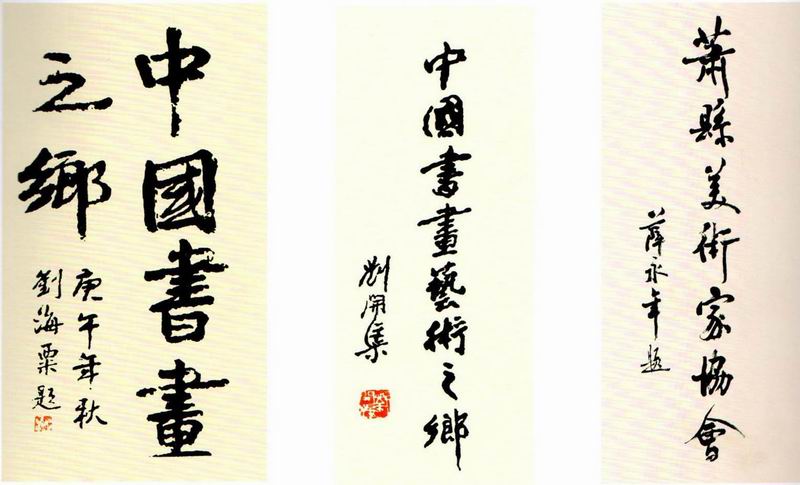 中國書畫
之鄉
庚午年秋
劉海粟題
中國書畫藝術之鄉
劉開渠
蕭縣美術家協會
薛永年題